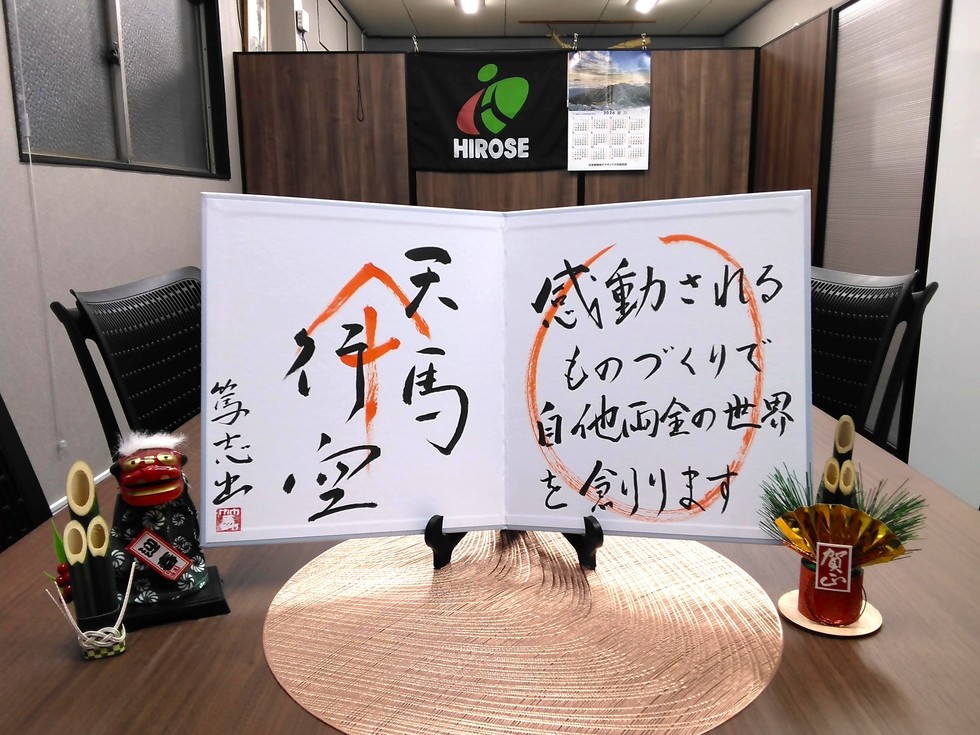 HIROSE
2026
感動される
ものづくりで
自他両全の世界
を創ります
天馬
行空
篤志出
賀正